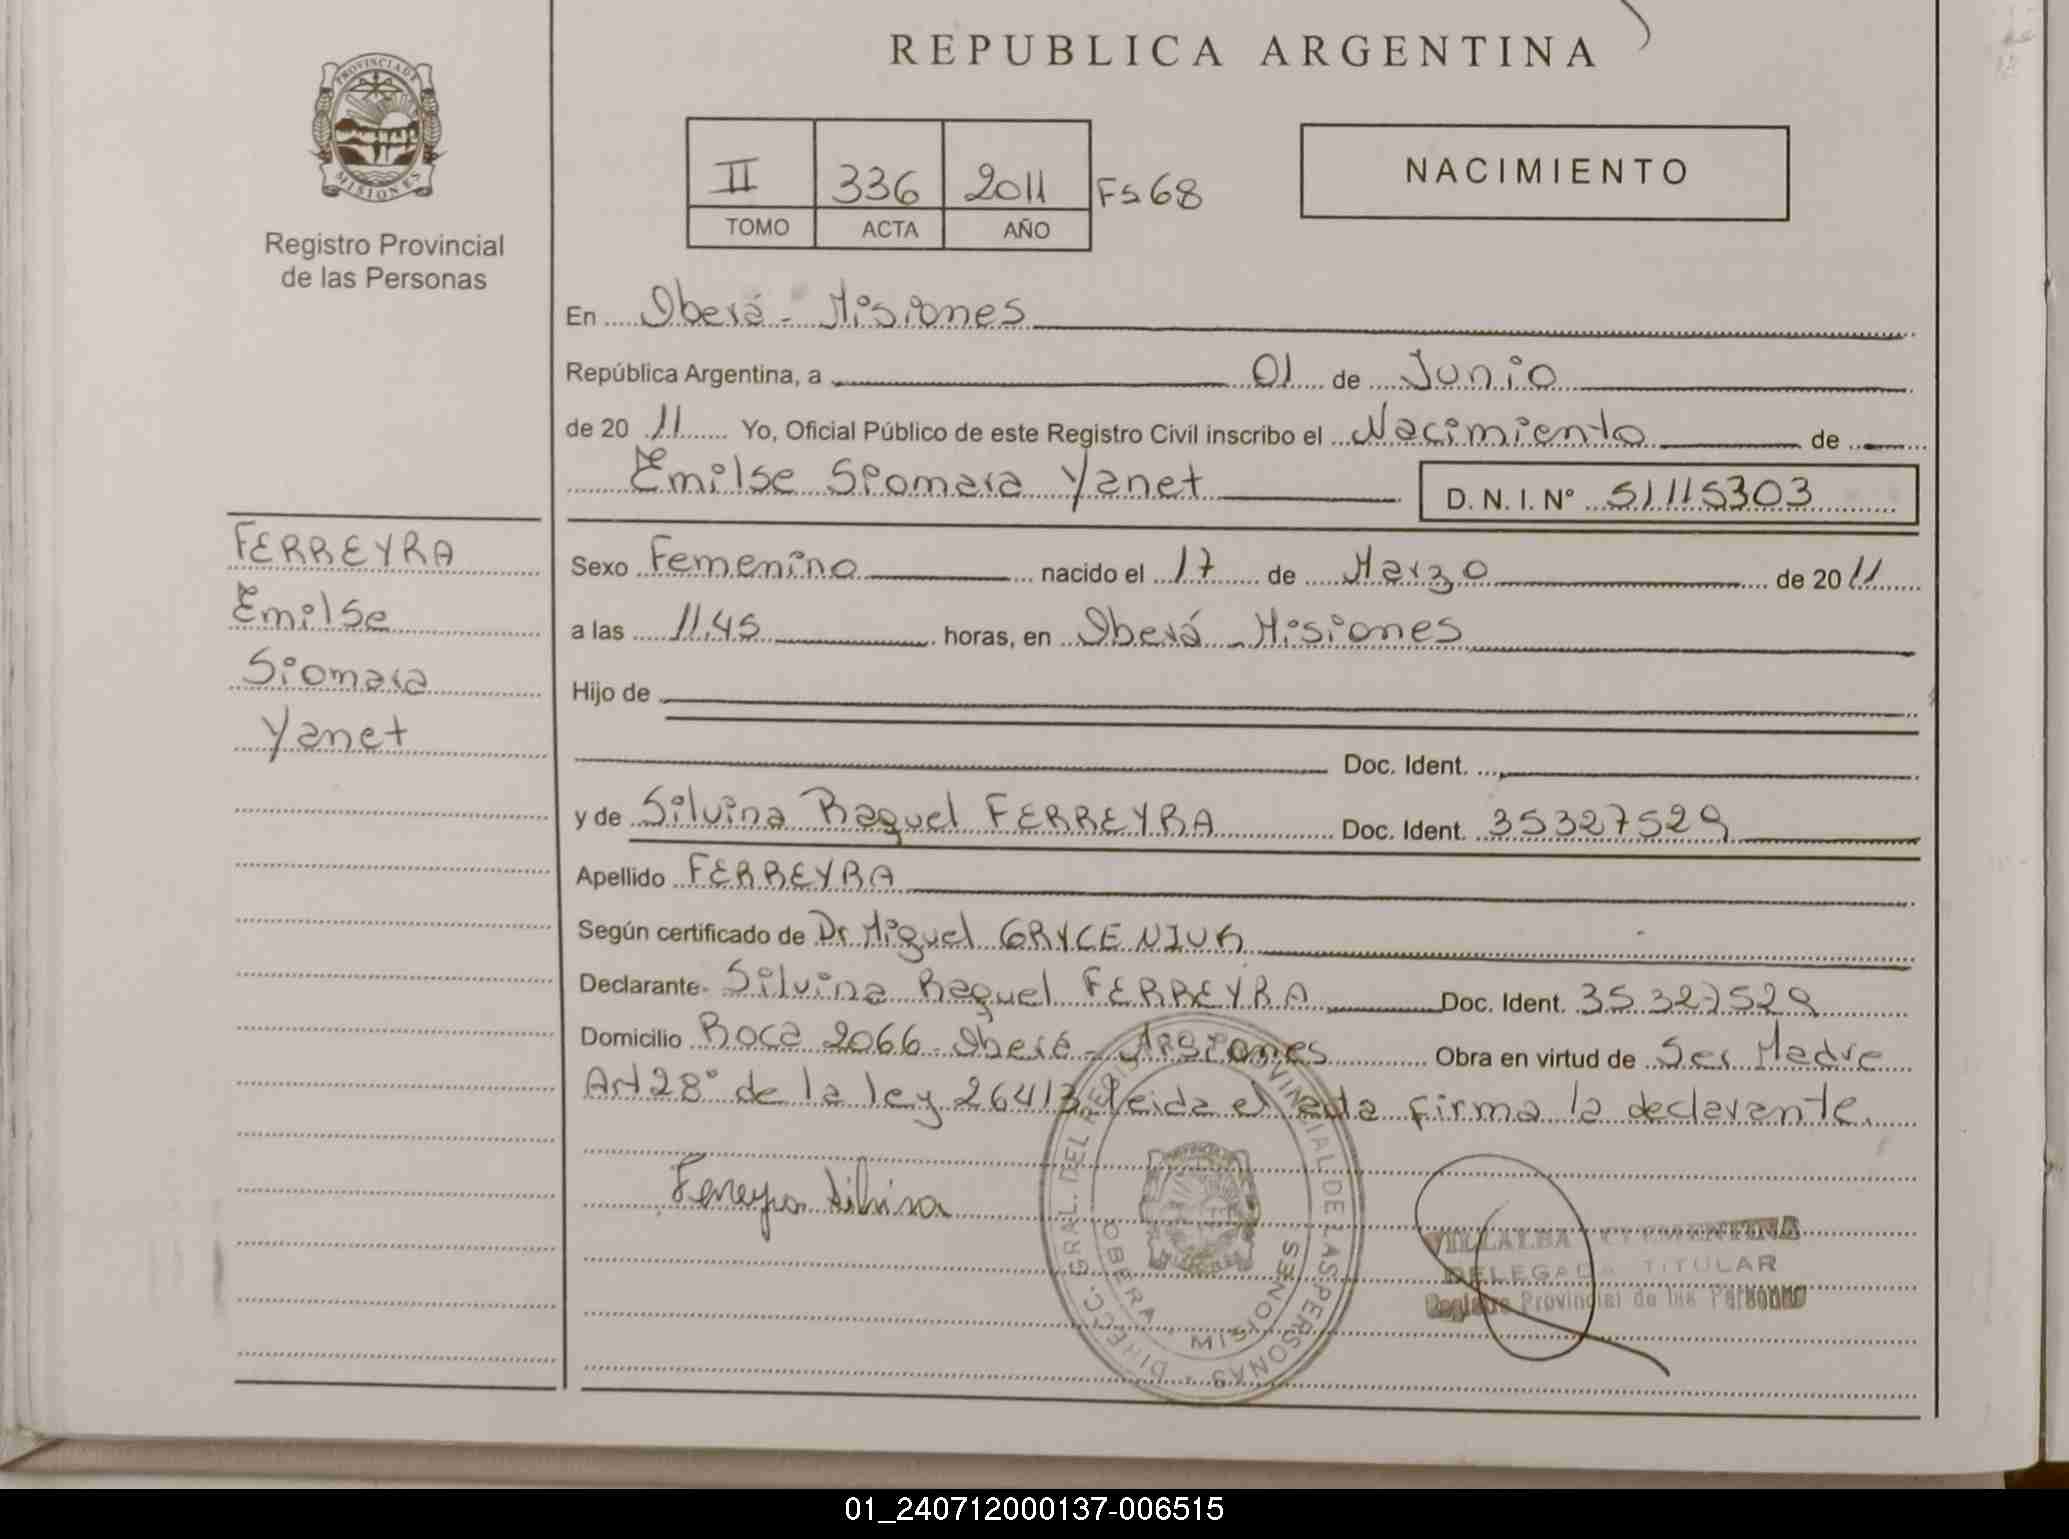 REPUBLICA ARGENTINA
PROVINCIA DE
MISIONES
Registro Provincial
de las Personas
II 336 2011 Fs 68
TOMO ACTA AÑO
NACIMIENTO
En Oberá - Misiones
República Argentina, a 01 de Junio
de 20 11 Yo, Oficial Público de este Registro Civil inscribo el Nacimiento de
Emilse Siomara Yanet D. N. I. Nº 51115303
FERREYRA
Emilse
Siomara
Yanet
Sexo Femenino nacido el 17 de Marzo de 20 11
a las 11.45 horas, en Oberá - Misiones
Hijo de
Doc. Ident.
y de Silvina Raquel FERREYRA Doc. Ident. 35327529
Apellido FERREYRA
Según certificado de Dr Miguel GRYCENIUK
Declarante Silvina Raquel FERREYRA Doc. Ident. 35.327529
Domicilio Roca 2066 - Oberá - Misiones Obra en virtud de Ser Madre
Art 28° de la ley 26413 leida el acta firma la declarante.
Ferreyra Silvina
DIRECC. GRAL. DEL REGIST. PROVINCIAL DE LAS PERSONAS
OBERA MISIONES
VILLALBA CLEMENTINA
DELEGADA TITULAR
Registro Provincial de las Personas
01_240712000137-006515